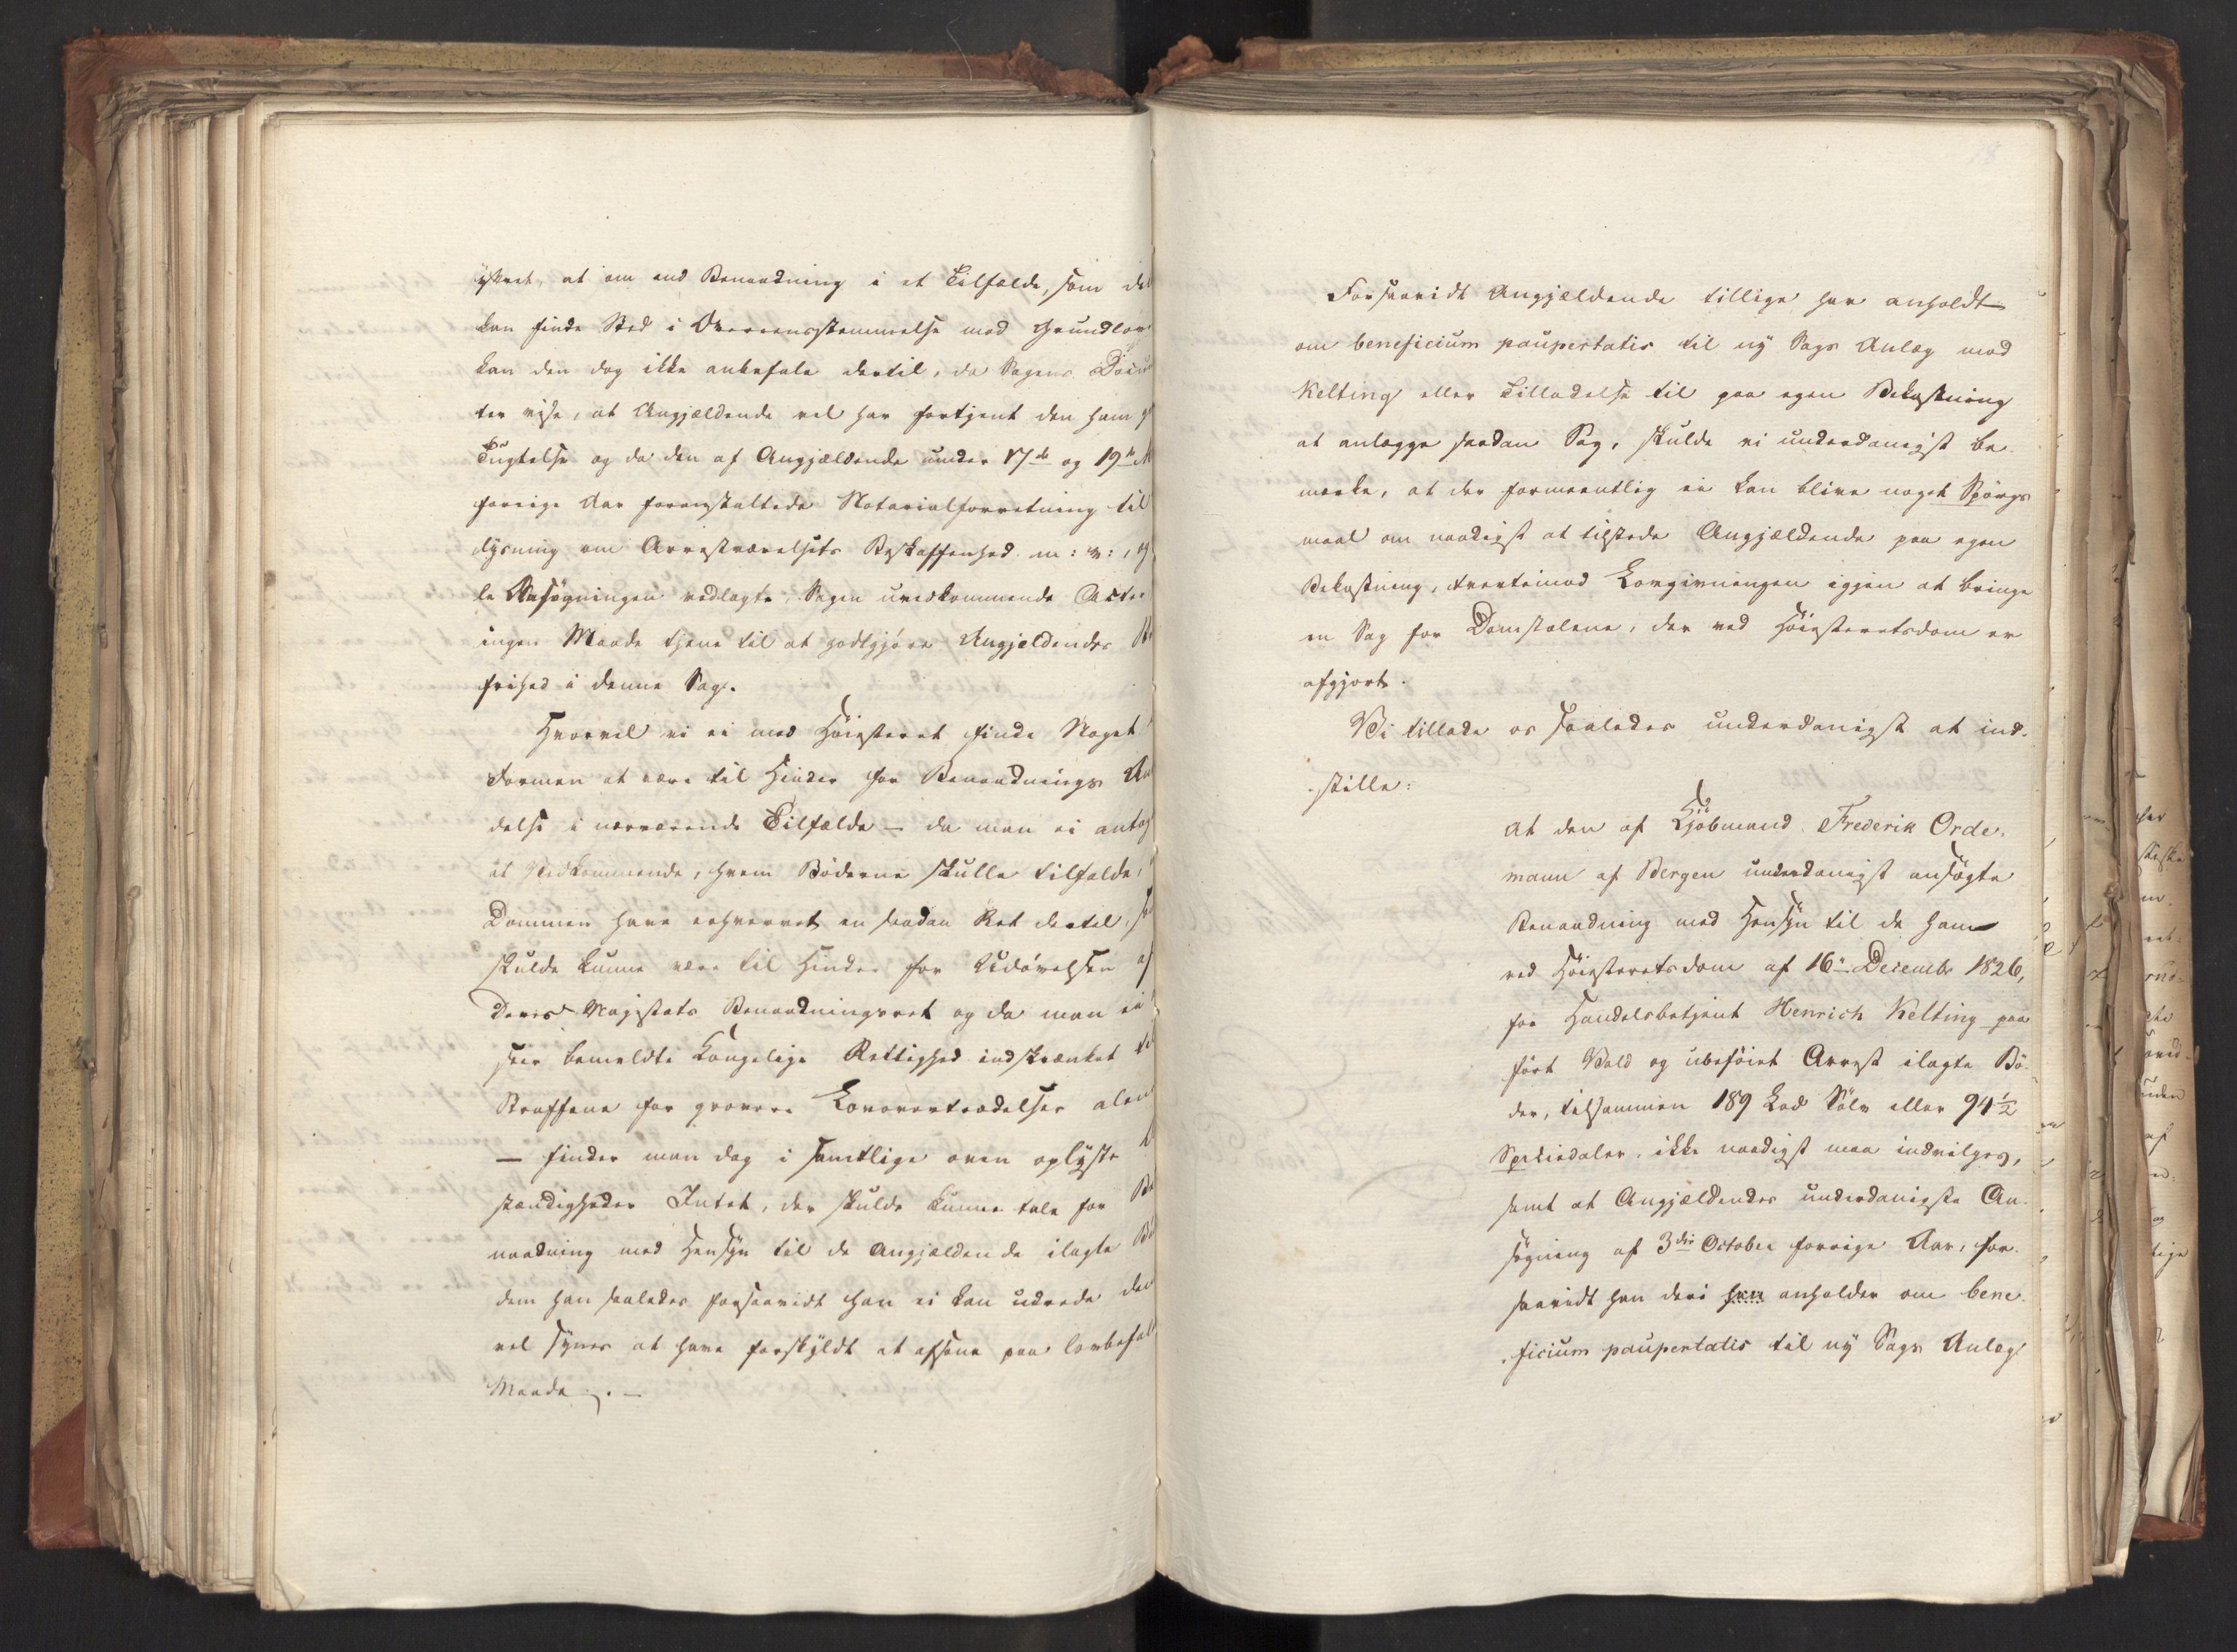 yttret, at om end Benaadning i et Tilfælde, som det
kan finde Sted i Overeensstemmelse med Grundlov
kan den dog ikke anbefale dertil, da Sagens Docu
ter vise, at Angjældende vel har fortjent den ham
Tugtelse og da den af Angjældende under 17de og 19de
forrige Aar foranstaltede Notarialforretning til
lysning om Arrestværelsets Beskaffenhed m: v:,
le Ansøgningen vedlagte, Sagen uvedkommende Acter
ingen Maade tjene til at godtgjøre Angjældendes
frihed i denne Sag.
Hvorvel vi ei med Høiesteret finde Noget
Formen at være til Hinder for Benaadnings An
delse i nærværende Tilfælde – da man ei antag
at Vedkommende, hvem Bøderne skulle tilfalde,
Dommen have erhvervet en saadan Ret dertil,
skulde kunne være til Hinder for Udøvelsen af
Deres Majestæts Benaadningsret og da man ei
seer bemeldte Kongelige Rettighed indskrænket
Straffene for grovere Lovovertrædelser alen
– finder man dog i samtlige oven oplyste
stændigheder Intet, der skulde kunne tale for Be
naadning med Hensyn til de Angjældende ilagte Bø
dem han saaledes forsaavidt han ei kan udrede dem
vel synes at have forskyldt at afsone paa lovbefal
Maade. –
Forsaavidt Angjældende tillige har anholdt
om beneficium paupertatis til ny Sags Anlæg mod
Kelting eller Tilladelse til paa egen Bekostning
at anlægge saadan Sag, skulde vi underdanigst be-
mærke, at der formeentlig ei kan blive noget Spørgs
maal om naadigst at tilstede Angjældende paa egen
Bekostning, tvertimod Lovgivningen igjen at bringe
en Sag for Domstolene, der ved Høiesteretsdom er
afgjort.
Vi tillade os saaledes underdanigst at ind-
stille:
At den af Kjøbmand Frederik Orde-
mann af Bergen underdanigst ansøgte
Benaadning med Hensyn til de ham
ved Høiesteretsdom af 16de Decembr 1826,
for Handelsbetjent Henrich Kelting paa
ført Vold og ubeføiet Arrest ilagte Bø-
der, tilsammen 189 Lod Sølv eller 94½
Speciedaler, ikke naadigst maa indvilges,
samt at Angjældendes underdanigste An-
søgning af 3die October forrige Aar, for-
saavidt han deri han anholder om bene-
ficium paupertatis til ny Sags Anlæg